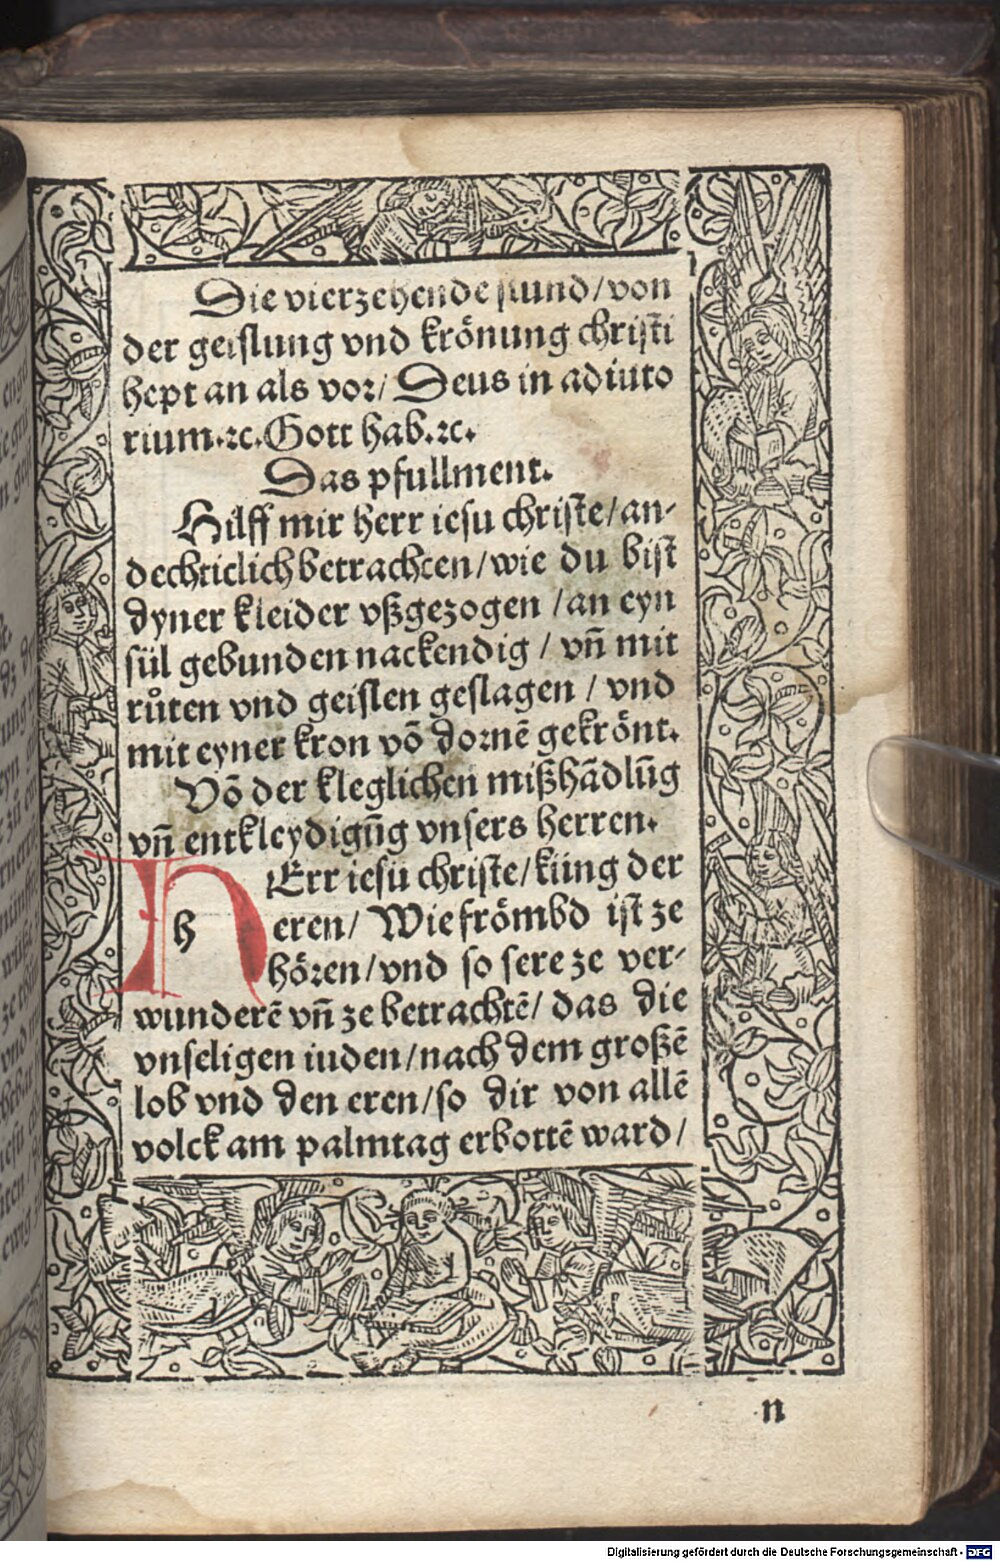 Die vierzehende stund/von
der geislung vnd krönung christi
hept an als vor/ Deus in adiuto
rium.⁊c. Gott hab.⁊c.
Das pfullment.
Hilff mir herr iesu christe/an-
dechticlich betrachten/wie du bist
dyner kleider vßgezogen /an eyn
sül gebunden nackendig / vn̄ mit
růten vnd geislen geslagen / vnd
mit eyner kron vō dornē gekrönt.
Vō der kleglichen mißhādlūg
vn̄ entkleydigūg vnsers herren.
HErr iesu christe/küng der
h
eren/ Wie frömbd ist ze
hören/vnd so sere ze ver-
wunderē vn̄ ze betrachtē/ das die
vnseligen iuden/nach dem großē
lob vnd den eren/so dir von allē
volck am palmtag erbottē ward/
n
Digitalisierung gefördert durch die Deutsche Forschungsgemeinschaft - DFG